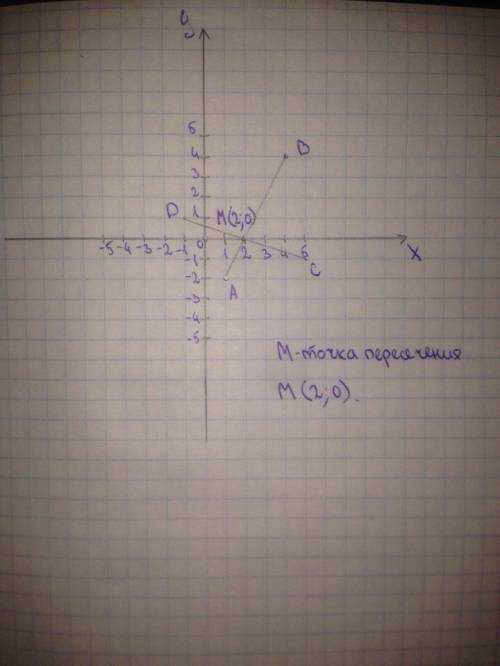 У
5
4
3
2
1
B
D
M(2;0)
-5 -4 -3 -2 -1 0 1 2 3 4 5
X
C
-1
-2
A
-3
-4
-5
М-точка пересечения
М(2;0).